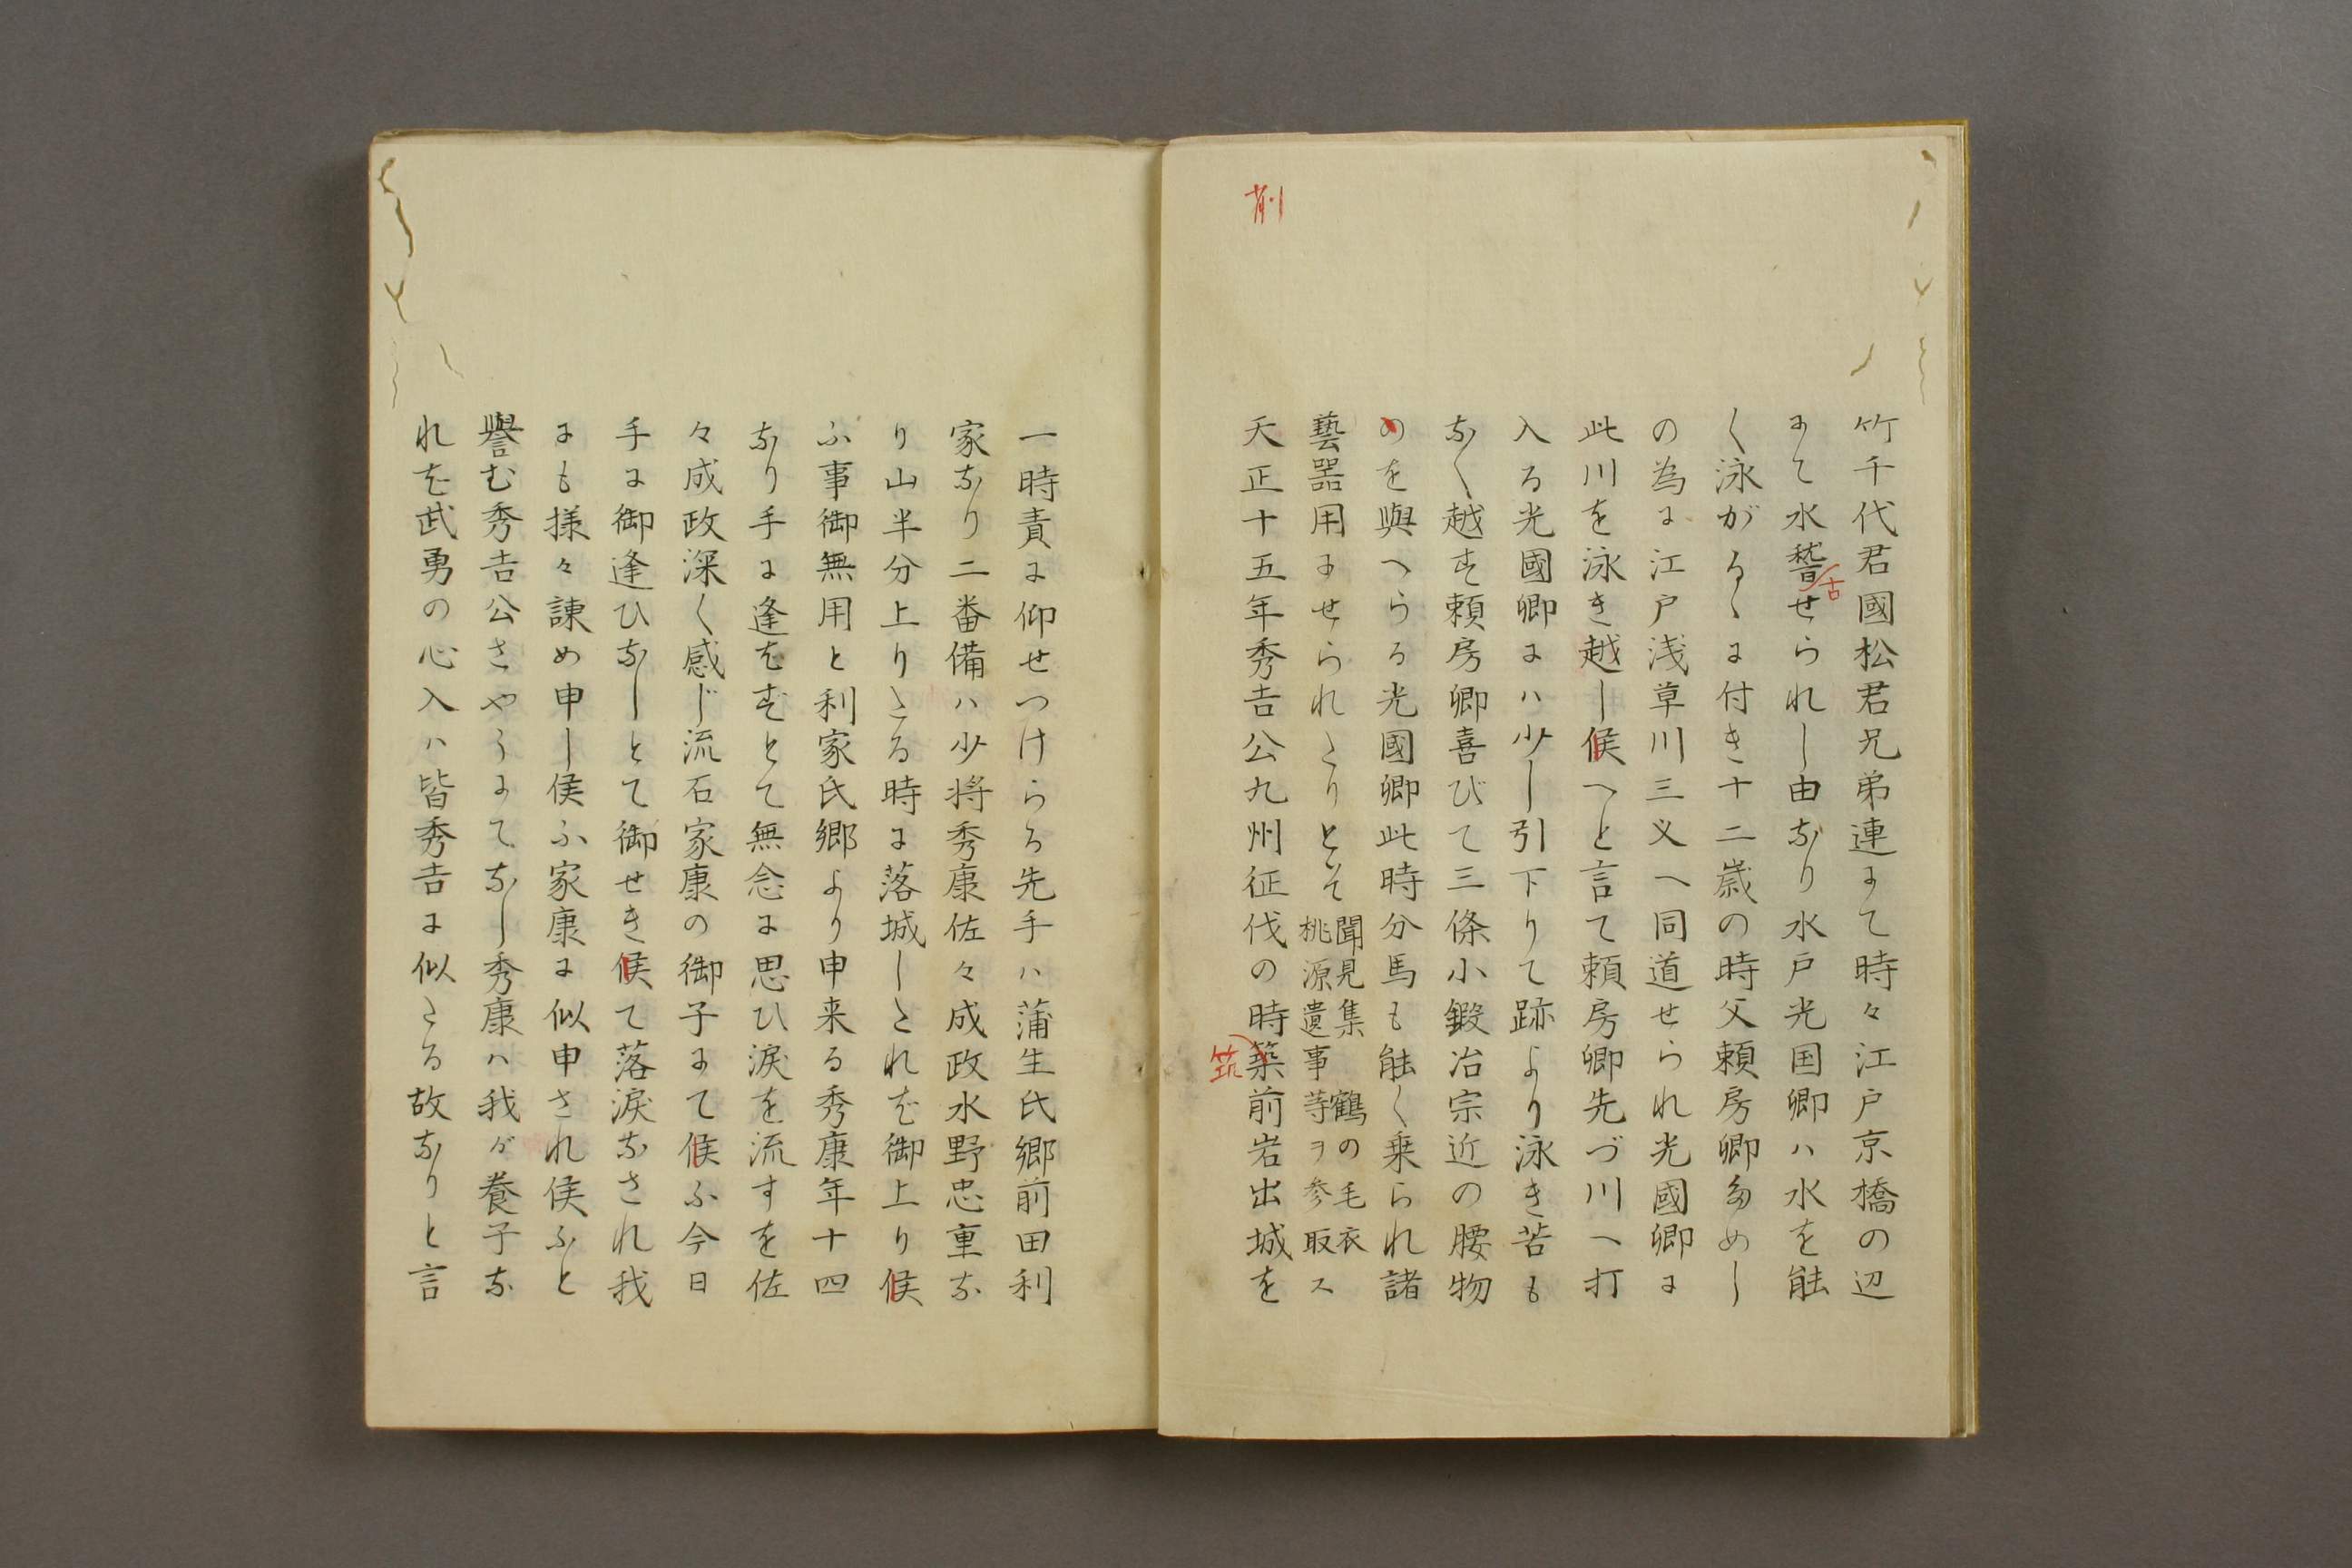 削
竹千代君國松君兄弟連まて時々江戸京橋の辺
まて水稽せられし由なり水戸光国卿ハ水を能
古
く泳がるゝに付き十二歳の時父頼房卿ためし
の為に江戸浅草川三义へ同道せられ光國卿に
此川を泳き越し候へと言て頼房卿先づ川へ打
入る光國卿にハ少し引下りて跡より泳き苦も
なく越す頼房卿喜びて三條小鍛冶宗近の腰物
のを與へらる光國卿此時分馬も能く乗られ諸
藝器用ませられたりとそ
聞見集 鶴の毛衣
桃源遺事等ヲ参取ス
天正十五年秀吉公九州征伐の時築前岩出城を
筑
一時責に仰せつけらる先手ハ蒲生氏郷前田利
家なり二番備ハ少将秀康佐々成政水野忠重な
り山半分上りたる時に落城したれば御上り候
ふ事御無用と利家氏郷より申来る秀康年十四
なり手に逢はずとて無念に思ひ涙を流すを佐
々成政深く感じ流石家康の御子まて候ふ今日
手に御逢ひなしとて御せき候て落涙なされ我
にも様々諫め申し候ふ家康に似申され候ふと
譽む秀吉公さやうまてなし秀康ハ我が養子な
れば武勇の心入ハ皆秀吉に似たる故なりと言